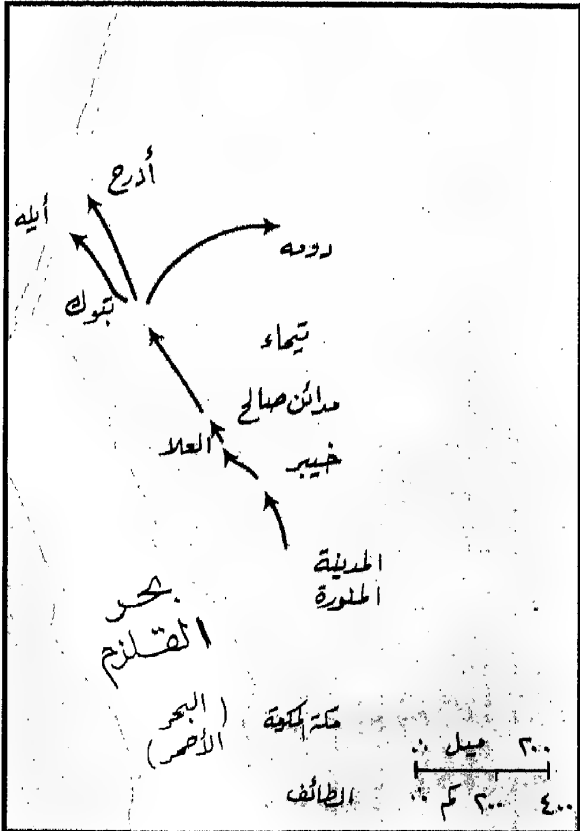 أذرح
أيله
دومه
تبوك
تيماء
مدائن صالح
العلا
خيبر
المدينة
المنورة
بحر
القلزم
(البحر
الأحمر)
مكة المكرمة
الطائف
٢٠٠ ميل ٠
٤٠٠ ٢٠٠ كم ٠